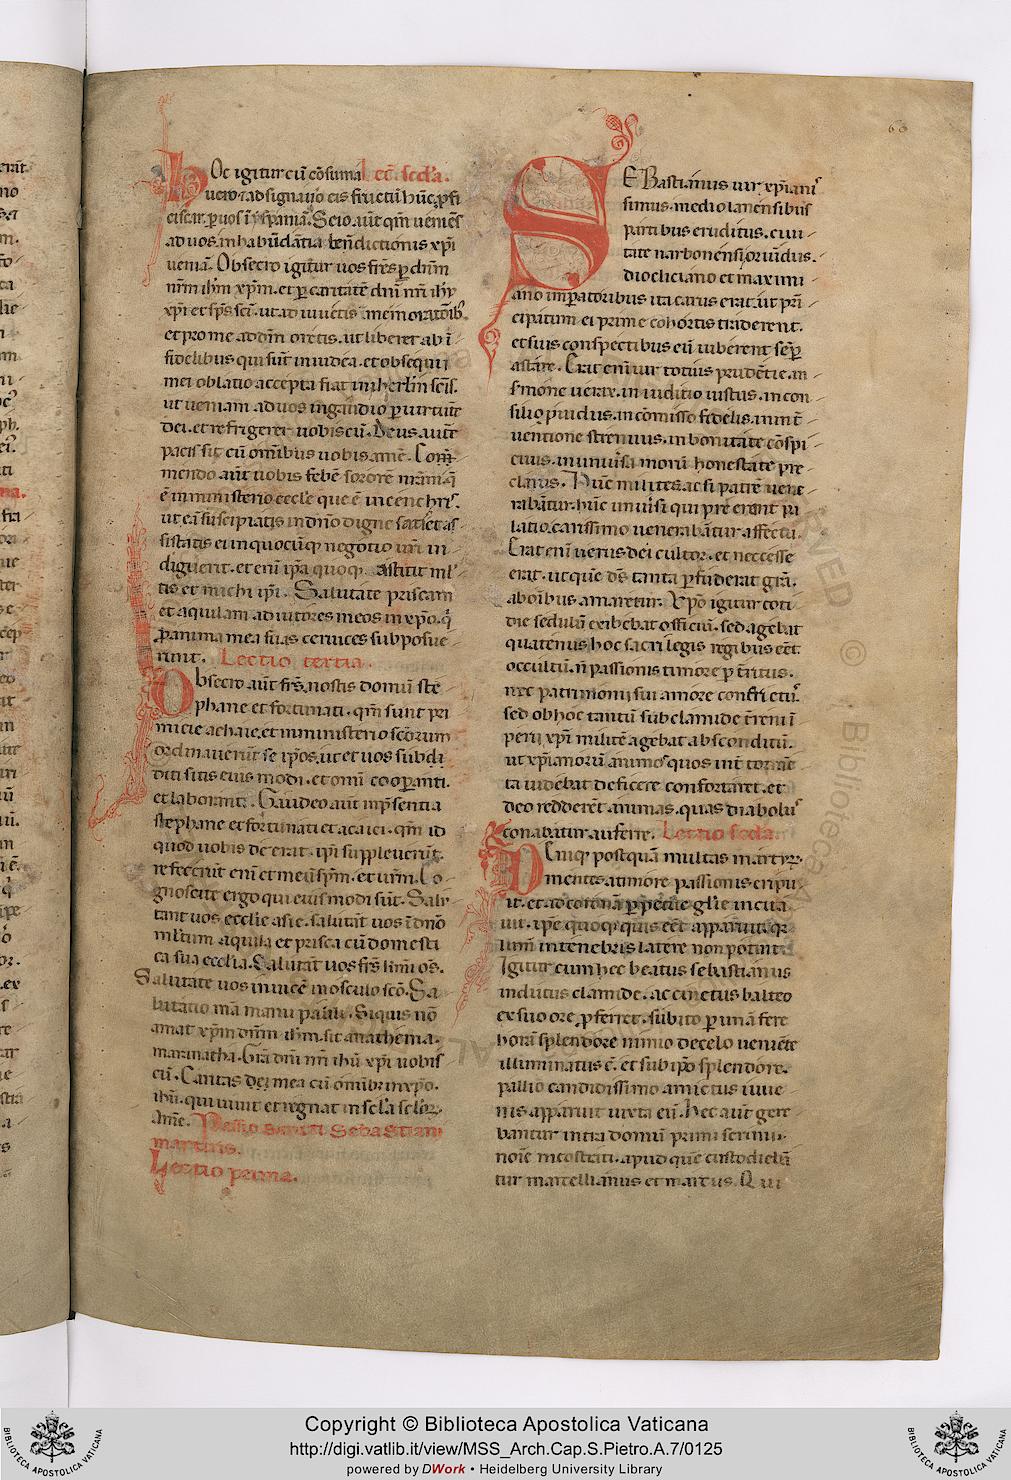 66
HOc igitur cū cōsuma Lect̄. scd̄a.
vero ⁊ adsignavero eis fructū hūc ꝓfi
ciscar ꝑ vos ī yspaniā. Scio aūt qm̄ veniēs
ad vos. in habūdātia bn̄dictionis xp̄i
veniā. Obsecro igitur vos frēs ꝑ dn̄m
nr̄m ih̄m xp̄m. et ꝑ caritatē dn̄i nr̄i ih̄u
xp̄i et sp̄s sc̄i. ut adiuvetis me in or̄atōib᷒
et pro me ad dn̄m oretis. ut liberer ab ī
fidelibus qui sūt in iudea. et obsequii
mei oblatio accepta fiat in ihr̄lm sc̄is.
ut veniam ad vos in gaudio ꝑ volūtatē
dei. et refrigerer vobiscū. Deus aūt
pacis sit cū om̄ibus vobis. amē. Com̄
mendo aūt vobis febē sororē nr̄am. q̄
ē in ministerio ecclē que ē in cenchris.
ut eā suscipiatis in dn̄o digne satis. et as
sistatis ei in quocūqꝫ negotio vr̄i in
diguerit. et enī ip̄a quoqꝫ astitit ml̄
tis et michi ip̄i. Salutate priscam
et aquilam adiutores meos in xp̄o. q̄
ꝓ anima mea suas cervices subposue
runt. Lectio tertia.
Obsecro aūt frs̄. nostis domū ste
phane et fortunati. qm̄ sunt pri
micie achaie. et in ministerio sc̄orum
ordinaverūt se ip̄os. ut et vos subdi
diti sitis eius modi. et omī cooperanti.
et laboranti. Gaudeo aūt in p̄sentia
stephane et fortunati et acaici. qm̄ id
quod vobis deerat. ip̄i suppleverūt.
refecerūt enī et meū sp̄m. et vr̄m. Co
gnoscite ergo qui eius modi sūt. Salu
tant vos ecclie asie. salutāt vos ī dn̄o
ml̄tum aquila et prisca cū domesti
ca sua ecclīa. Salutāt vos frs̄ om̄s.
Salutate vos invicē in osculo sc̄o. Sa
lutatio mā manu pauli. Siquis nō
amat xp̄m dn̄m ih̄m. sit anathema.
maranatha. Grā dn̄i nr̄i ih̄u xp̄i vobis
cū. Caritas dei mea cū omībꝫ in xp̄o.
ih̄u. qui vivit et regnat in sclā sclōꝝ.
Amē. Passio Sancti Sebastiani
martiris.
Lectio prima.
SEBastianus vir xp̄ianis
simus. mediolanensibus
partibus eruditus. civi
tate narbonensi oriūdus.
diocliciano et maximi
ano imꝑatoribus ita carus erat. ut pri
cipatum ei prime cohortis traderent.
et suis conspectibus eū iuberent semꝑ
astare. Erat enī vir totius prudētie. in
smone verax. in iuditio iustus. in con
silio ꝓvidus. in comisso fedelis. in int̄
ventione strenuus. in bonitate cōspi
cuus. in univsa morū honestate pre
clarus. Hūc milites ac si patrē vene
rabātur. hūc univsi qui p̄re erant pa
latio carissimo venerabātur affectu.
Erat enī verus dei cultor. et neccesse
erat. ut quē ds̄ tanta ꝑfuderat grā.
ab oībus amaretur. Xp̄o igitur coti
die sedulū exibebat officiū. sed agebat
quatenus hoc sacrilegis regibus eēt
occultū. n̄ passionis timore ꝑtritus.
nec patrimonii sui amore constrictus.
sed ob hoc tantū sub clamide t̄reni ī
perii xp̄i militē agebat absconditū.
ut xp̄ianorū animos quos int̄ tormē
ta videbat deficere confortaret. et
deo redderet animas. quas diabolus
conabatur auferre. Lectio scd̄a.
Deniqꝫ postquā multas martyꝝ
mentes. a timore passionis eripu
it. et ad coronā ꝑpetue glīe incita
vit. ip̄e quoqꝫ quis eēt apparuit. qꝛ
lumī in tenebris latere non poterit
Igitur cum hec beatus sebastianus
indutus clamide. ac cinctus balteo
ex suo ore ꝓferret. subito ꝑ unā fere
horā splendore nimio de celo veniēte
illuminatus ē. et sub ip̄o splendore.
pallio candidissimo amictus iuve
nis apparuit iuxta eū. Hec aūt gere
bantur intra domū primi scrinii.
noīe nicostrati. apud quē custodiebā
tur marcellianus et marcus. Qui
Copyright © Biblioteca Apostolica Vaticana
http://digi.vatlib.it/view/MSS_Arch.Cap.S.Pietro.A.7/0125
powered by DWork • Heidelberg University Library
BIBLIOTECA APOSTOLICA VATICANA
BIBLIOTECA APOSTOLICA VATICANA